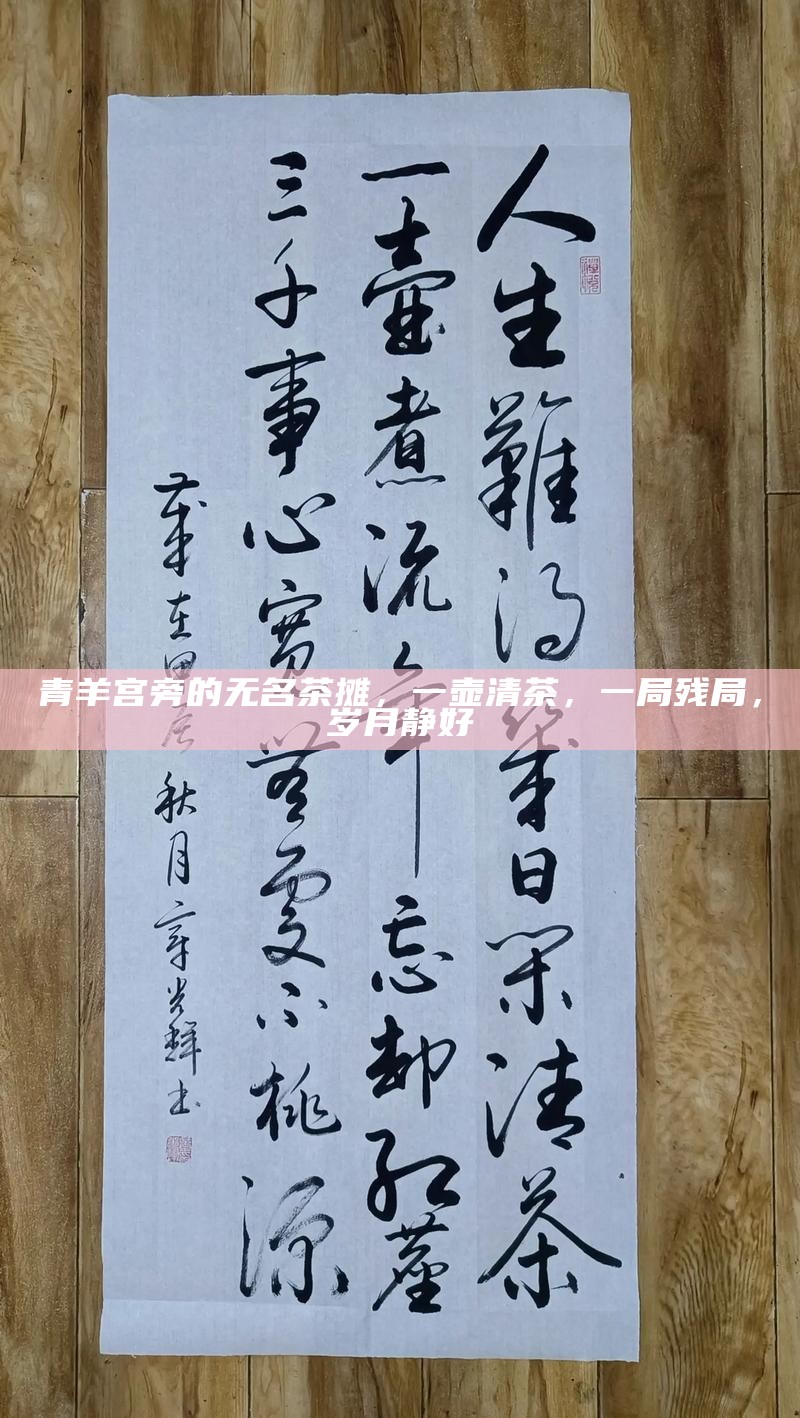 人生難得幾日閑清茶
一壺煮流年忘却紅塵
三千事心寬無處不桃源
歲在甲辰秋月光輝书
青羊宫旁的无名茶摊，一壶清茶，一局残局，
岁月静好